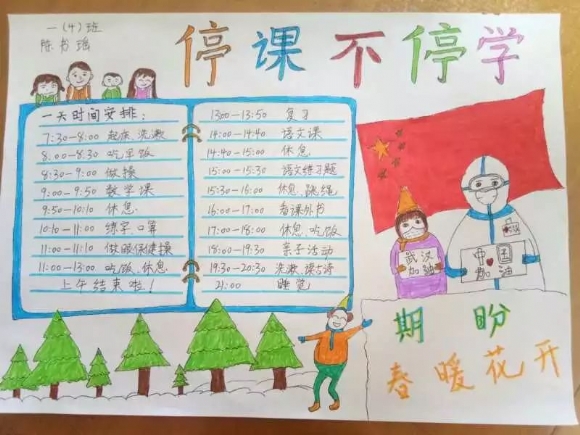 一(4)班
陈书瑶
停课不停学
一天时间安排:
7:30—8:00 起床 洗漱
8:00—8:30 吃早饭
8:30—9:00 做操
9:00—9:50 数学课
9:50—10:10 休息
10:10—11:00 练字 口算
11:00—11:10 做眼保健操
11:00—13:00 吃饭、休息
上午结束啦!
13:00—13:50 复习
14:00—14:40 语文课
14:40—15:00 休息
15:00—15:30 语文练习题
15:30—16:00 休息 跳绳
16:00—17:00 看课外书
17:00—18:00 休息、吃饭
18:00—19:30 亲子活动
19:30—20:30 洗漱 读古诗
21:00 睡觉
武汉
加油
中国
加油
期盼
春暖花开